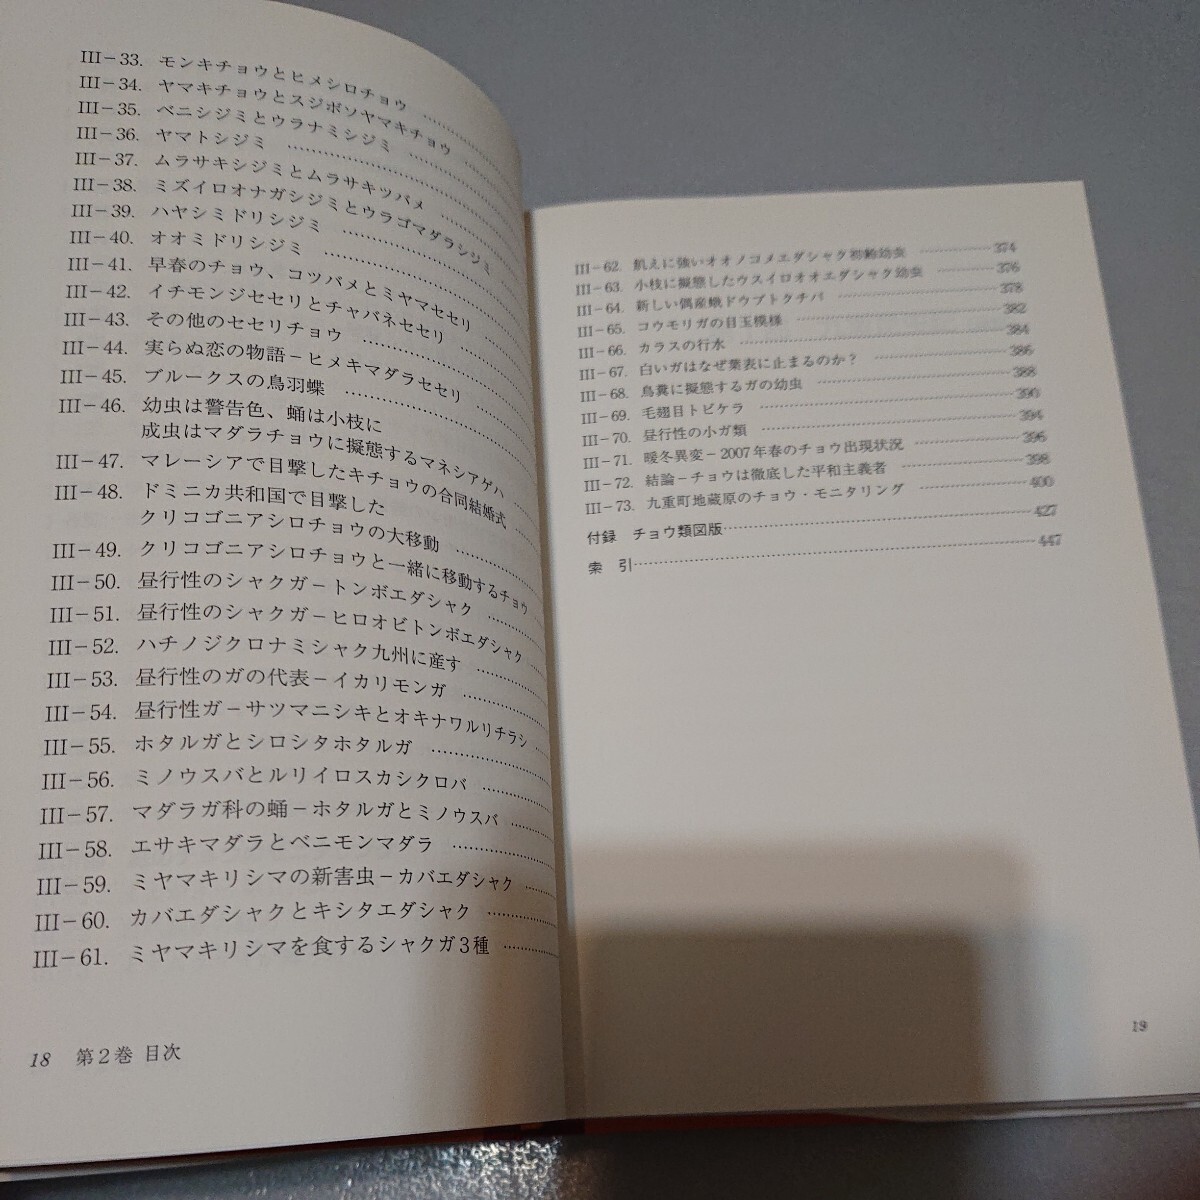 III−33. モンキチョウとヒメシロチョウ
III−34. ヤマキチョウとスジボソヤマキチョウ
III−35. ベニシジミとウラナミシジミ
III−36. ヤマトシジミ
III−37. ムラサキシジミとムラサキツバメ
III−38. ミズイロオナガシジミとウラゴマダラシジミ
III−39. ハヤシミドリシジミ
III−40. オオミドリシジミ
III−41. 早春のチョウ、コツバメとミヤマセセリ
III−42. イチモンジセセリとチャバネセセリ
III−43. その他のセセリチョウ
III−44. 実らぬ恋の物語−ヒメキマダラセセリ
III−45. ブルークスの鳥羽蝶
III−46. 幼虫は警告色、蛹は小枝に
成虫はマダラチョウに擬態するマネシアゲハ
III−47. マレーシアで目撃したキチョウの合同結婚式
III−48. ドミニカ共和国で目撃した
クリコゴニアシロチョウの大移動
III−49. クリコゴニアシロチョウと一緒に移動するチョウ
III−50. 昼行性のシャクガ−トンボエダシャク
III−51. 昼行性のシャクガ−ヒロオビトンボエダシャク
III−52. ハチノジクロナミシャク九州に産す
III−53. 昼行性のガの代表−イカリモンガ
III−54. 昼行性ガ−サツマニシキとオキナワルリチラシ
III−55. ホタルガとシロシタホタルガ
III−56. ミノウスバとルリイロスカシクロバ
III−57. マダラガ科の蛹−ホタルガとミノウスバ
III−58. エサキマダラとベニモンマダラ
III−59. ミヤマキリシマの新害虫−カバエダシャク
III−60. カバエダシャクとキシタエダシャク
III−61. ミヤマキリシマを食するシャクガ3種
18 第2巻 目次
III−62. 飢えに強いオオノコメエダシャク初齢幼虫 374
III−63. 小枝に擬態したウスイロオオエダシャク幼虫 376
III−64. 新しい偶産蛾ドウブトクチバ 378
III−65. コウモリガの目玉模様 382
III−66. カラスの行水 384
III−67. 白いガはなぜ葉表に止まるのか？ 386
III−68. 鳥糞に擬態するガの幼虫 388
III−69. 毛翅目トビケラ 390
III−70. 昼行性の小ガ類 394
III−71. 暖冬異変−2007年春のチョウ出現状況 396
III−72. 結論−チョウは徹底した平和主義者 398
III−73. 九重町地蔵原のチョウ・モニタリング 400
付録 チョウ類図版 427
索 引 447
19